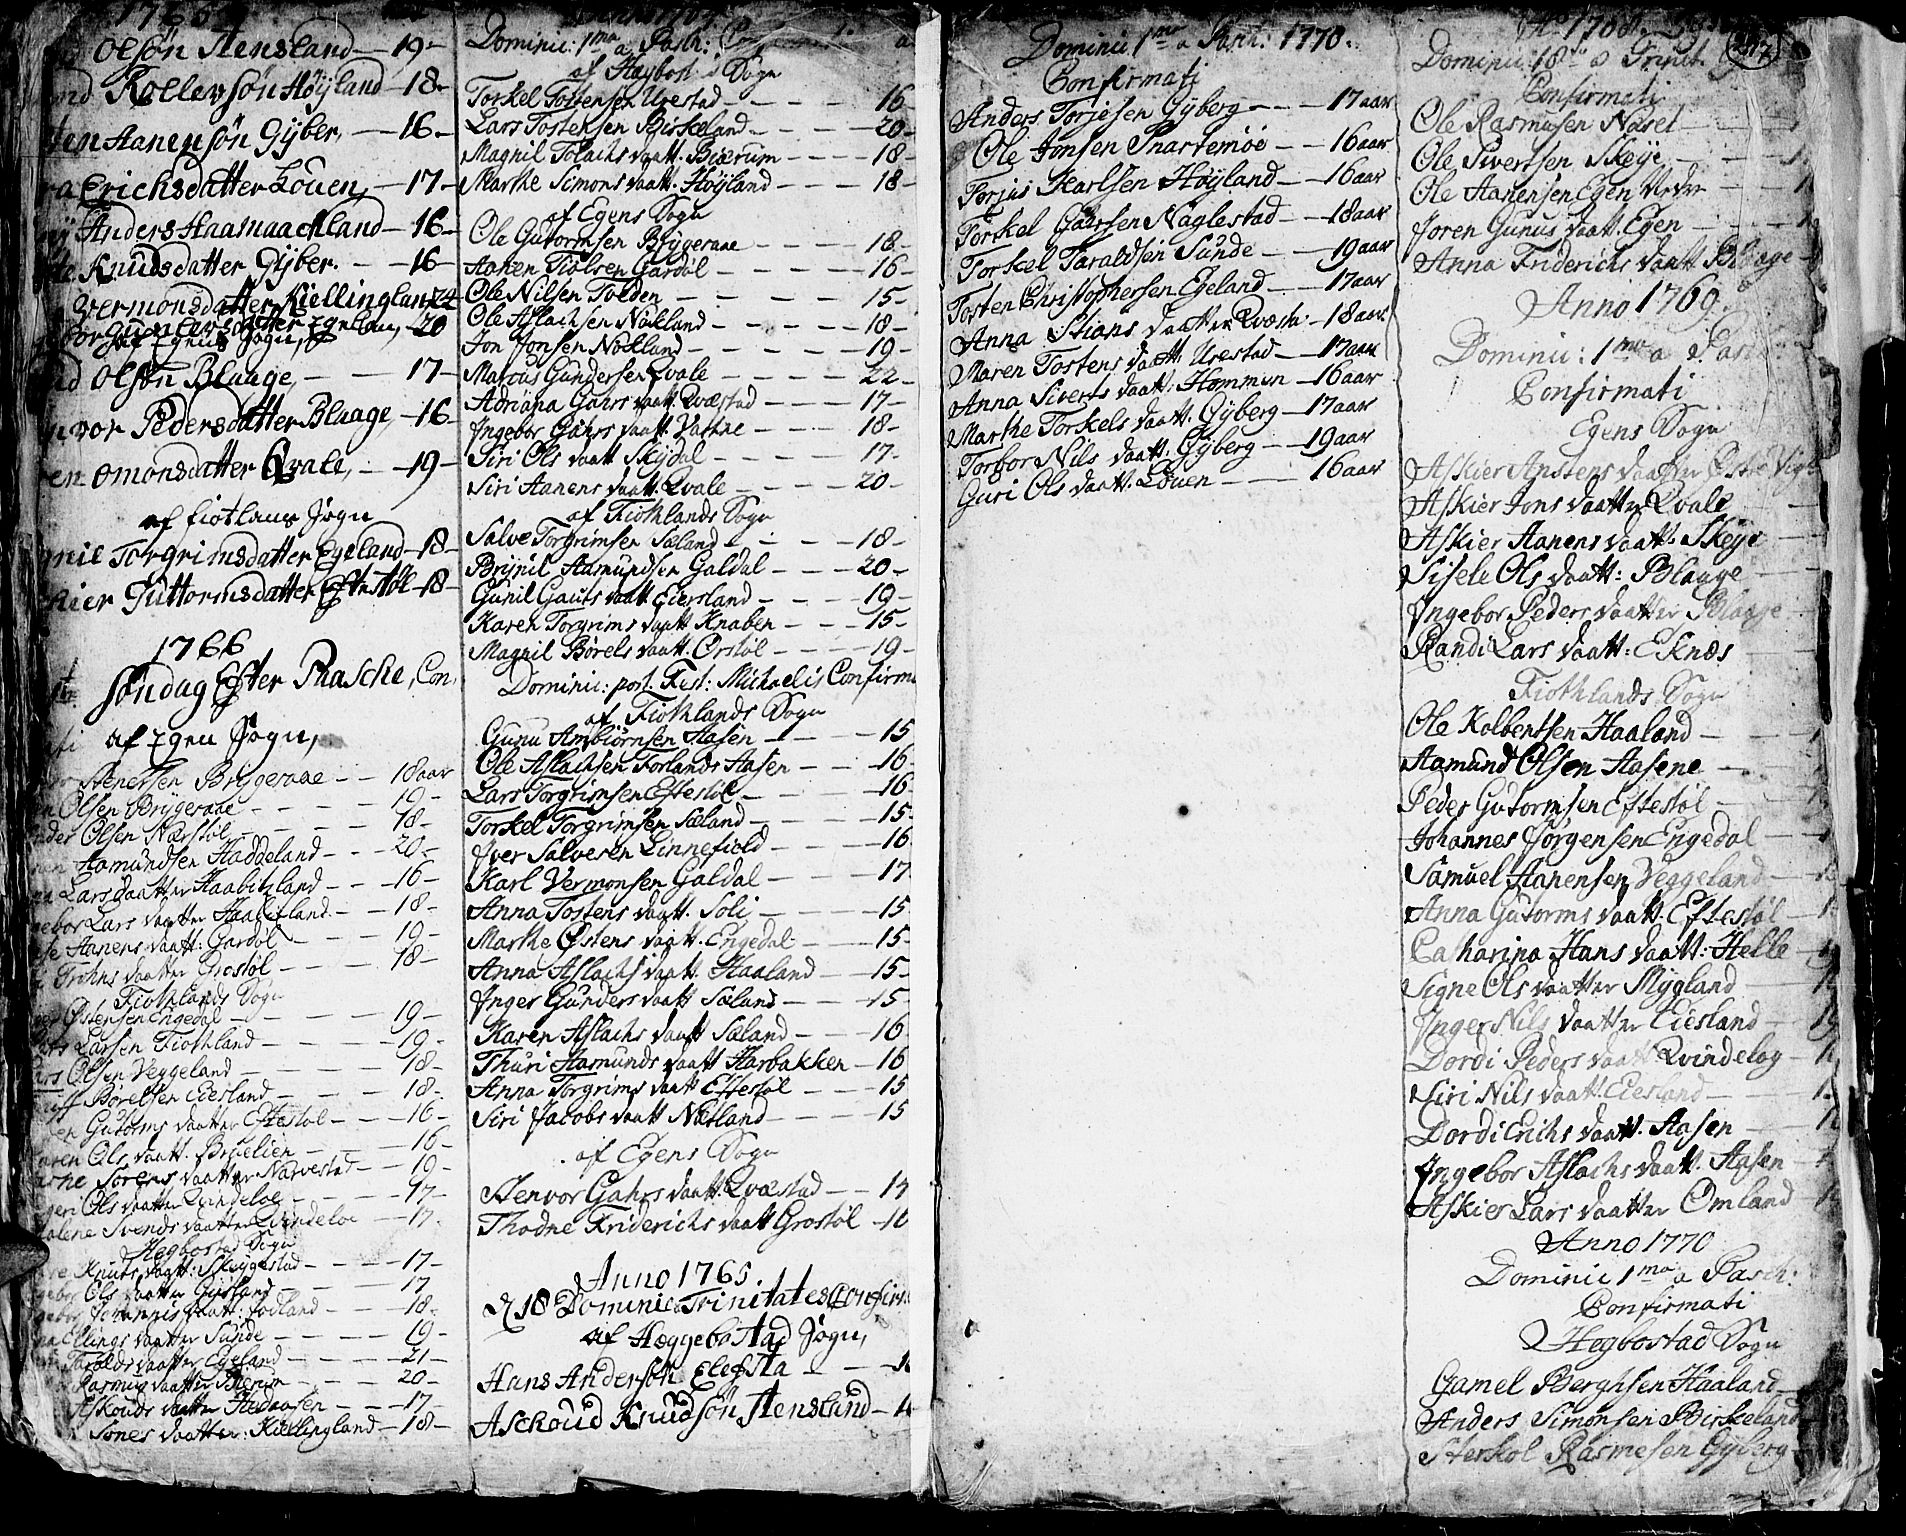 1765
Olsön Stensland – 19 –
Rollevsön Höÿland – 18 –
Aanensön Gÿber, – 16 –
Erichsdatter Louen, – 17 –
Anders Haamaachland – 16 –
Knudsdatter Gÿber. – 16 –
Vermonsdatter Kiellingland 24
20
af Egens Sogn,
Olsön Blaage, – 17 –
Pedersdatter Blaage, – 16 –
omonsdatter Qvale, – 19 –
af fiotlans Sogn
Torgrimsdatter Egeland – 18 –
Guttormsdatter Eftestöl – 18 –
1766
Söndag Efter Paasche, Con
af Egen Sogn,
Stenersen Brÿgeraae – – 18 aar
Olsen Brÿgeraae – – – 19 –
Olsen Nærstöl – – – 18 –
Aamundsen Haddeland – – 20 –
Larsdaatter Haabitzland – – 16 –
Lars daatter Haabitzland. – – 18 –
Aanens daatt: Gardöl – – 19 –
daatter Grostöl – – – 18 –
Fiothlands Sogn
Östensen Engedal – – – 19 –
Larsen Fiothland – – – 19 –
Olsen Veggeland – – – 18 –
Börelsen Eiesland – – – 18 –
Gutorms daatter Eftestöl – – 16 –
Karen Ols daatt. Bruelien – – 16 –
Sörens daatter Narvestad – – 19 –
Ols daatter Qvindeloe – – 17 –
Svends daatter Qvindeloe – 17 –
Hegbostad Sogn
Knuts daatt: Skeÿgestad – – 17 –
Ols daatter Giisland – – 17
Johannis daatt: Jödland – – 18 –
Ellings daatter Sunde – – – 19 –
Taralds daatter Egeland – – – 21 –
Rasmus daatter Bierum – – – 20 –
Askouds daatter – – 17 –
Sones daatter: Kiellingland – 18 –
Dominic: 1ma a Pasch:
af Hegbost: Sogn
Torkel Tostensen Urestad – – – 16 –
Lars Tostensen Birkeland – – – 20 –
Magnil Tolachs daatt. Biærum – – – 18 –
Marthe Simons daatt. Höÿland – – – 18 –
af Egens Sogn
Ole Gutormsen Brÿgeraae – – – 18 –
Aanen Tiölsen Gardöl – – – 16 –
Ole Nilsen Tveden – – – 15 –
Ole Aslachsen Nökland – – – 18 –
Jon Jonsen Nökland – – – 19 –
Marcus Gundersen Qvale – – – 22 –
Adriana Gahrs daatt Qvæstad – – – 17 –
Ingebor Gahrs daatt. Vatne – – – 18 –
Siri Ols daatt Skeÿdal – – – 17 –
Siri Aanens daatt. Qvale – – – 20 –
af Fiothlands Sogn
Salve Torgrimsen Sæland – – – 18 –
Brÿnil Aamundsen Galdal – – – 20 –
Gunil Gauts daatt Eiersland – – – 19 –
Karen Torgrims daatt Knaben – – – 15 –
Magnil Börels daatt. Örstöl – – – 19 –
Dominic: post. Fest: Michaelis Confirma
af Fiothlands Sogn
Gunu Ambiörnsen Aasen – – – 15
Ole Aslachsen Forlands Aasen – – 16
Lars Torgrimsen Eftestöl – – – 16
Torkel Torgrimsen Sæland – – – 15
Iver Salvesen Linnefiold – – – 16
Karl Vermonsen Galdal – – – 17
Anna Tostens daatt. Soli – – – 15
Marthe Östens daatt. Engedal – – – 15
Anna Aslachs daatt. Haaland – – 15
Inger Gunders daatt Sæland – – – 15
Karen Aslachs daatt Sæland – – – 16
Thuri Aamunds daatt Harbakken – 16
Anna Torgrims daatt Eftestöl – – – 15
Siri Jacobs daatt Netland – – – 15
af Egens Sogn
Stenvor Gahrs daatt. Qvæstad – – 17
Thodne Friderichs daatt Grostöl – 16
Anno 1765.
d 18 Dominica Trinitates Confirm
af Heggebostad Sogn,
Hans Andersön Elefsta –
Aschoud Knudsön Stensland –
Dominic 1ma a Pasch: 1770.
Confirmati
Anders Torjesen Gÿberg – – – 17 aar
Ole Jonsen Snartemöe – – 16 aar
Torjus Karlsen Höÿland – – 16 aar
Torkel Gaarsen Naglestad – – 18 aar
Torkel Taraldsen Sunde – – 19 aar
Tosten Christophersen Egeland – – 17 aar
Anna Stians daatter Qvæsta – 18 aar
Maren Tostens daatt. Urestad – 17 aar
Anna Siverts daatt: Hommen – 16 aar
Marthe Torkels daatt. Gÿberg – 17 aar
Torbor Nils daatt. Gÿberg – – 19 aar
Guri Ols daatt. Louen – – – 16 aar
Ao 1768.
Dominic 18 a Trinit.
Confirmati
Ole Rasmusen Naset – –
Ole Sivertsen Skeÿe – –
Ole Aanensen Egen Neder – –
Joren Gunus daatt. Egen – –
Anna Friderichs daatt Blaage –
Anno 1769.
Dominic: 1ma a Pasc
Confirmati
Egens Sogn
Askier Anstens daatter
Askier Jons daatter Qvale
Askier Aanens daatt. Skeÿe – –
Sisele Ols daatt: Blaage – –
Ingebor Peders daatter Blaage
Randi Lars daatt: Eknæs
Fiothlands Sogn
Ole Kolbentsen Haaland – –
Aamund Olsen Aasene – –
Peder Gutormsen Eftestöl – –
Johannes Jörgensen Engedal –
Samuel Aanensen Veggeland – –
Anna Gutorms daatt. Eftestöl –
Catharina Hans daatt: Helle –
Signe Ols daatter Mÿgland –
Inger Nils daatter Eiesland –
Dordi Peders daatt Qvindelog –
Siri Nils daatt. Eiesland – –
Dordi Erichs daatt. Aasen – –
Ingebor Aslachs daatt. Aasen –
Askier Lars daatter Omland –
Anno 1770
Dominic 1ma a Pasch:
Confirmati
Hegbostad Sogn
Gamel Berghsen Haaland –
Anders Simonsen Birkeland
Sterkol Rasmesen Gÿberg –